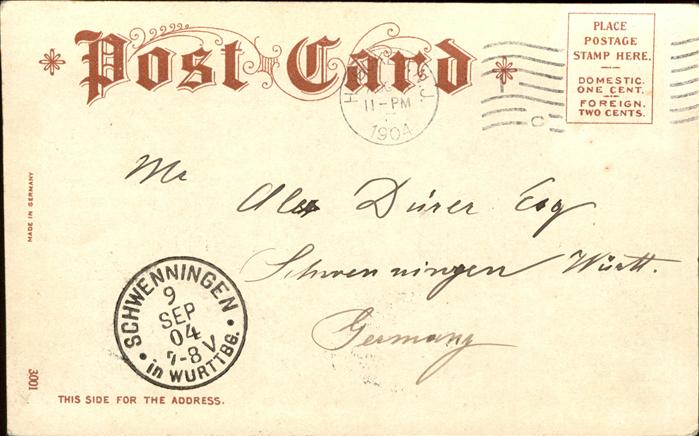 Post Card
PLACE
POSTAGE
STAMP HERE.
DOMESTIC.
ONE CENT.
FOREIGN.
TWO CENTS.
11-PM
1904
C
MADE IN GERMANY
Mr
Alex Dürer Esq
Schwenningen Württ.
Germany
SCHWENNINGEN
9
SEP
04
7-8 V
in WÜRTTBG.
3001
THIS SIDE FOR THE ADDRESS.